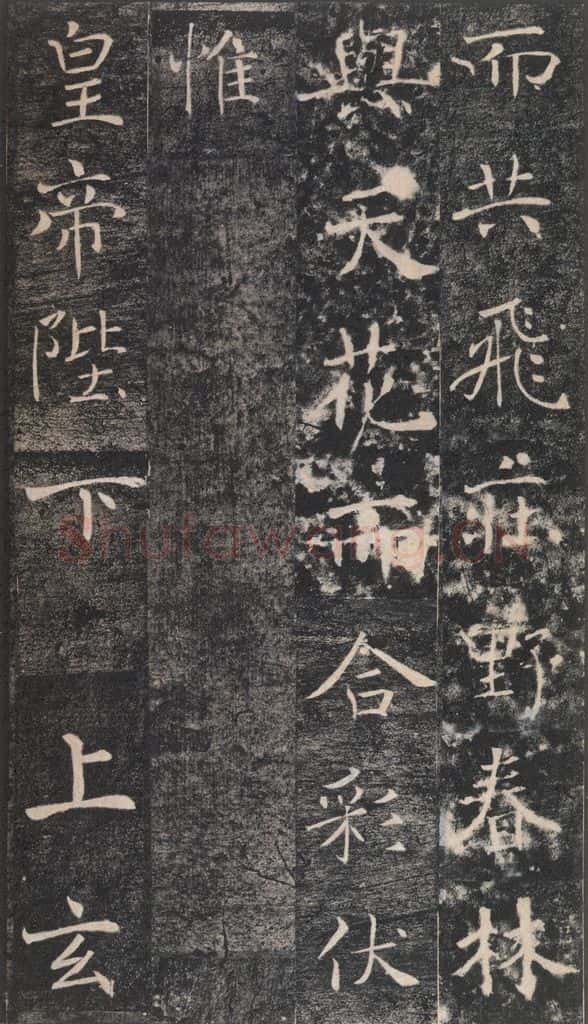 而共飛莊野春林
與天花而合彩伏
惟
皇帝陛下上玄
Shufawang.CN